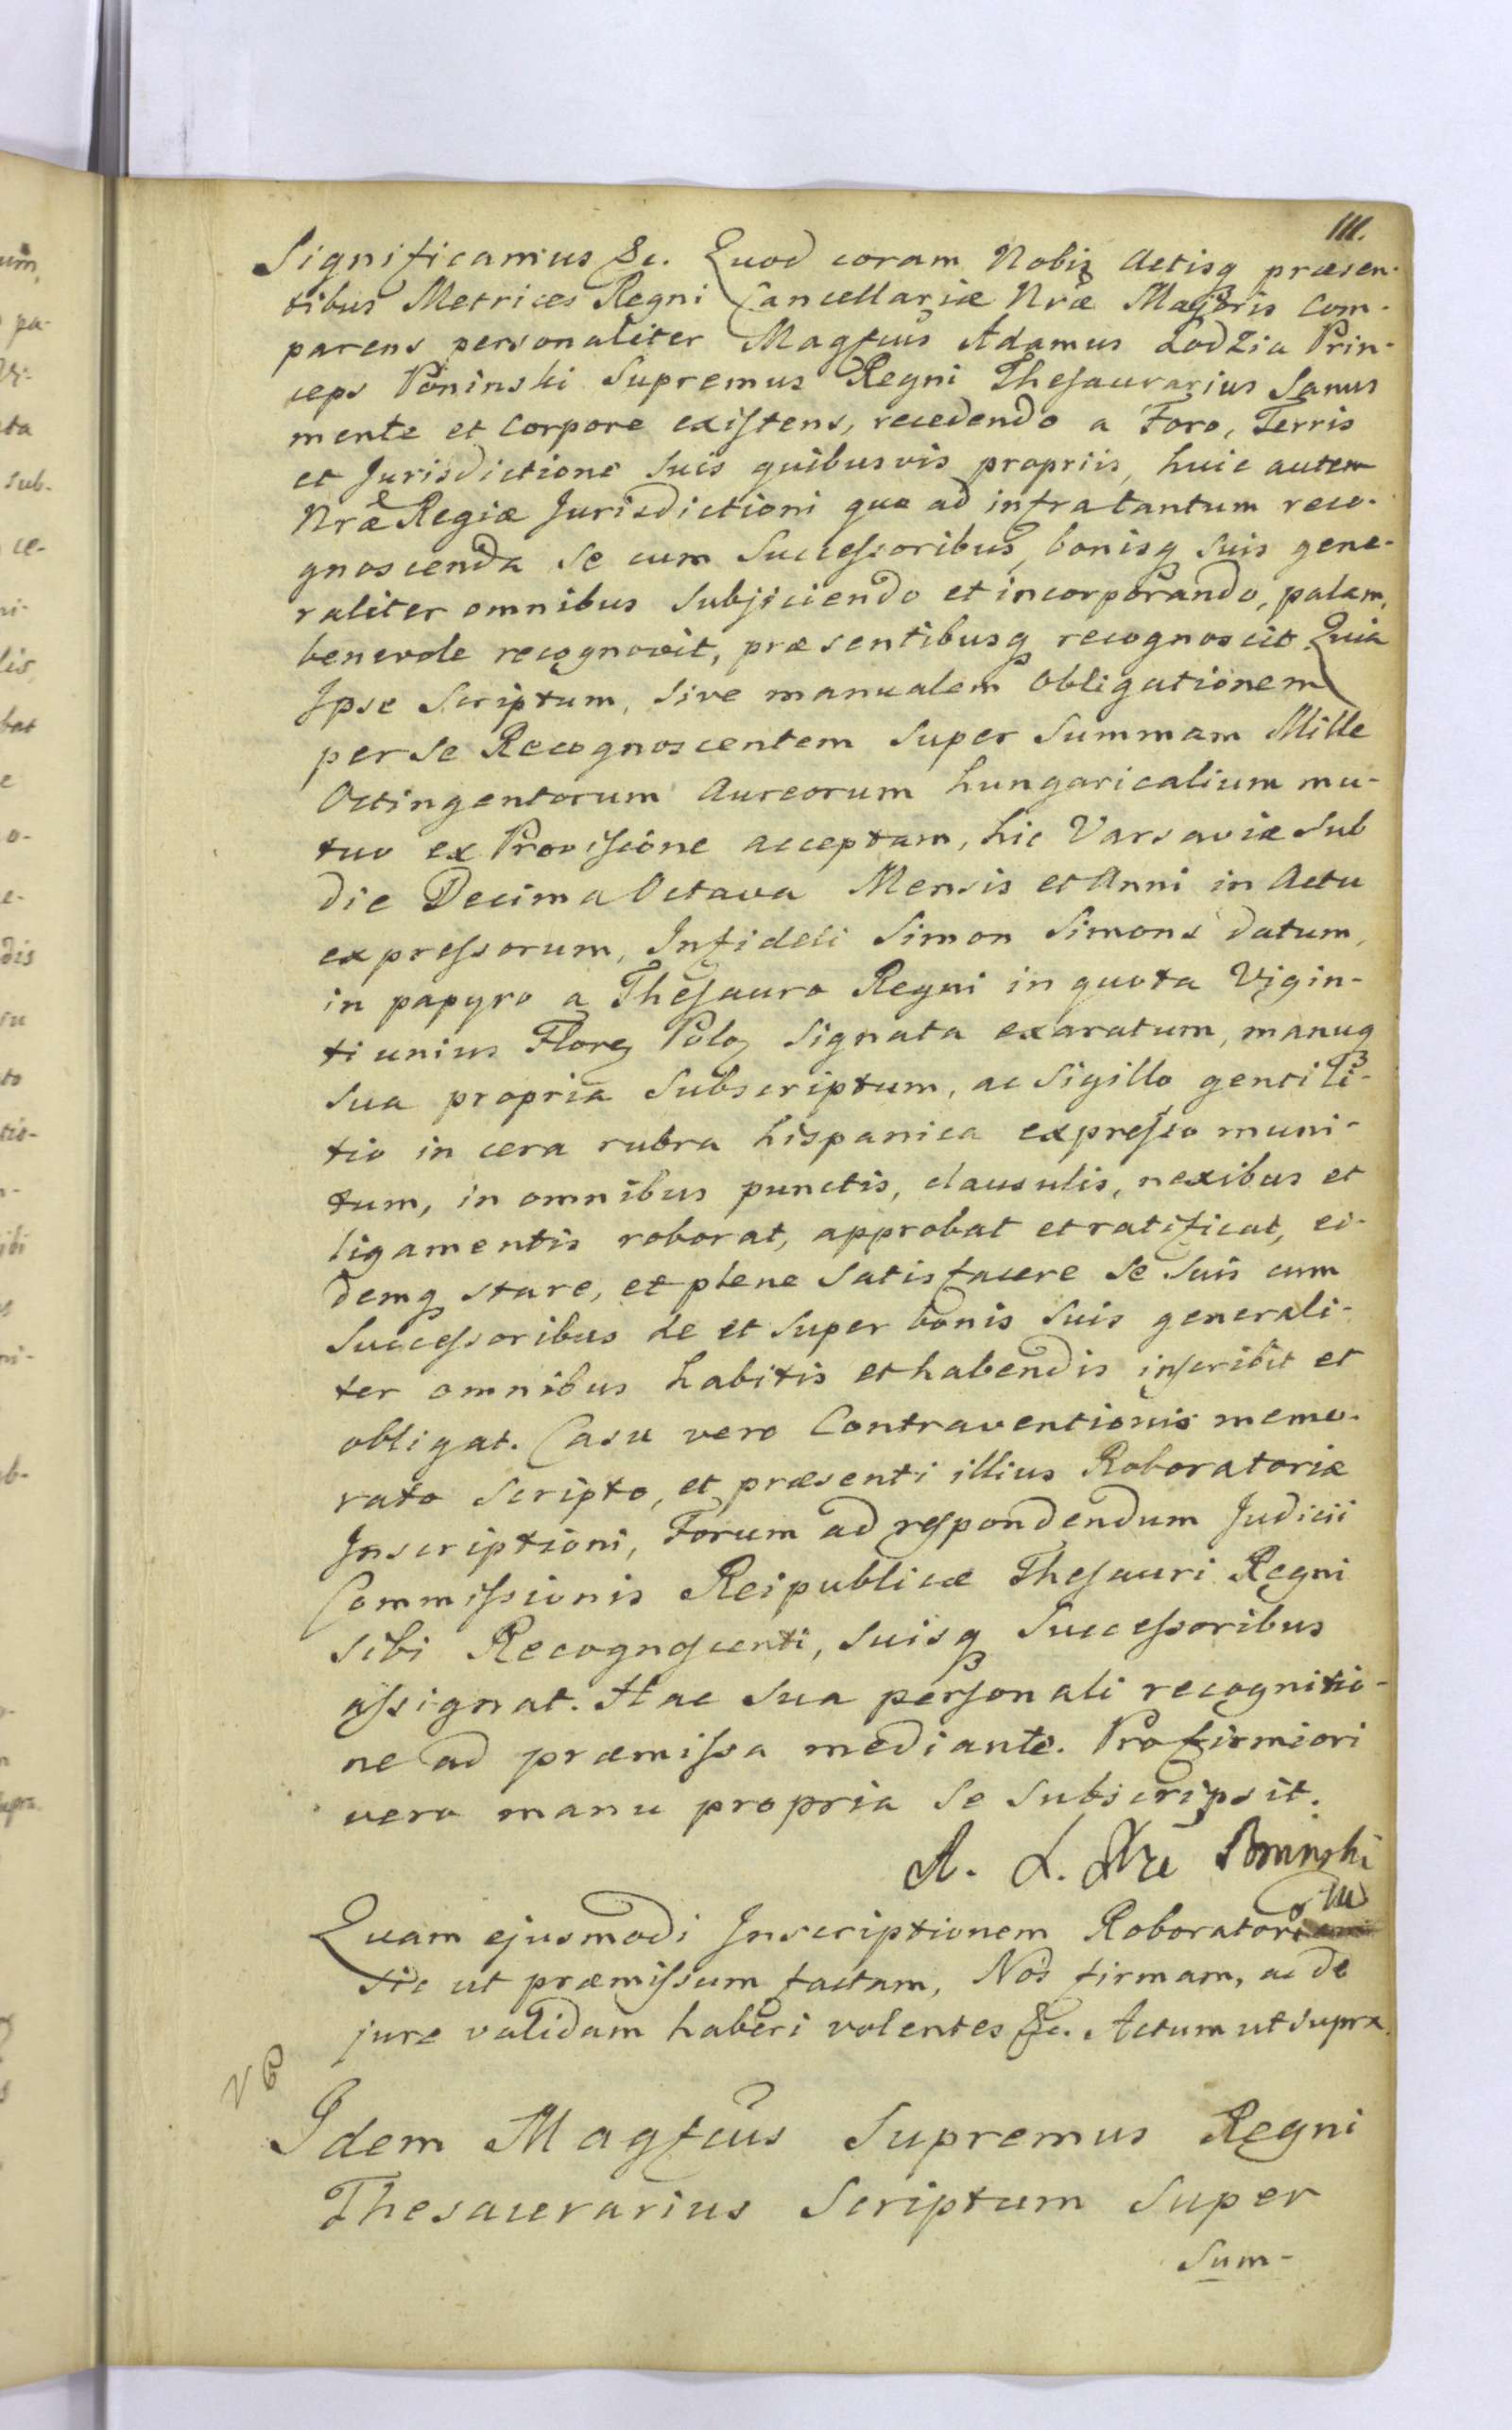 111.
Significamus &c. Quod coram Nobis Actisq præsen-
tibus Metrices Regni Cancellariæ Nræ Majoris Com-
parens personaliter Magfcus Adamus Lodzia Prin-
ceps Poninski Supremus Regni Thesaurarius Sanus
mente et Corpore existens, recedendo a Foro, Terris
et Jurisdictione suis quibusvis propriis, huic autem
Nræ Regiæ Jurisdictioni quo ad infratantum reco-
gnoscenda se cum Successoribus, bonisq suis gene-
raliter omnibus subjiciendo et incorporando, palam,
benevole recognovit, præsentibusq recognoscit. Quia
Ipse Scriptum, sive manualem Obligationem
per se Recognoscentem super Summam Mille
Octingentorum Aureorum hungaricalium mu-
tuo ex Provisione acceptam, hic Varsaviæ sub
die Decima Octava Mensis et Anni in Actu
expressorum, Infideli Simon Simons datum,
in papyro a Thesauro Regni in quota Vigin-
ti unius Flor Pol signata exaratum, manuq
sua propria subscriptum, ac sigillo gentili-
tio in cera rubra hispanica expresso muni-
tum, in omnibus punctis, clausulis, nexibus et
ligamentis roborat, approbat et ratificat, ei-
demq stare, et plene satisfacere se suis cum
Successoribus de et super bonis suis generali-
ter omnibus habitis et habendis inscribit et
obligat. Casu vero Contraventionis memo-
rato scripto, et præsenti illius Roboratoriæ
Inscriptioni, Forum ad respondendum Judicii
Commissionis Reipublicæ Thesauri Regni
sibi Recognoscenti, suisq Successoribus
assignat. Hac sua personali recognitio-
ne ad præmissa mediante. Pro firmiori
vero manu propria se subscripsit.
A. L. Poninski
Quam ejusmodi Inscriptionem Roboratoriam
sic ut præmissum factam, Nos firmam, ac de
jure validam haberi volentes &c. Actum ut supra.
Idem Magfcus Supremus Regni
Thesaurarius Scriptum super
Sum-